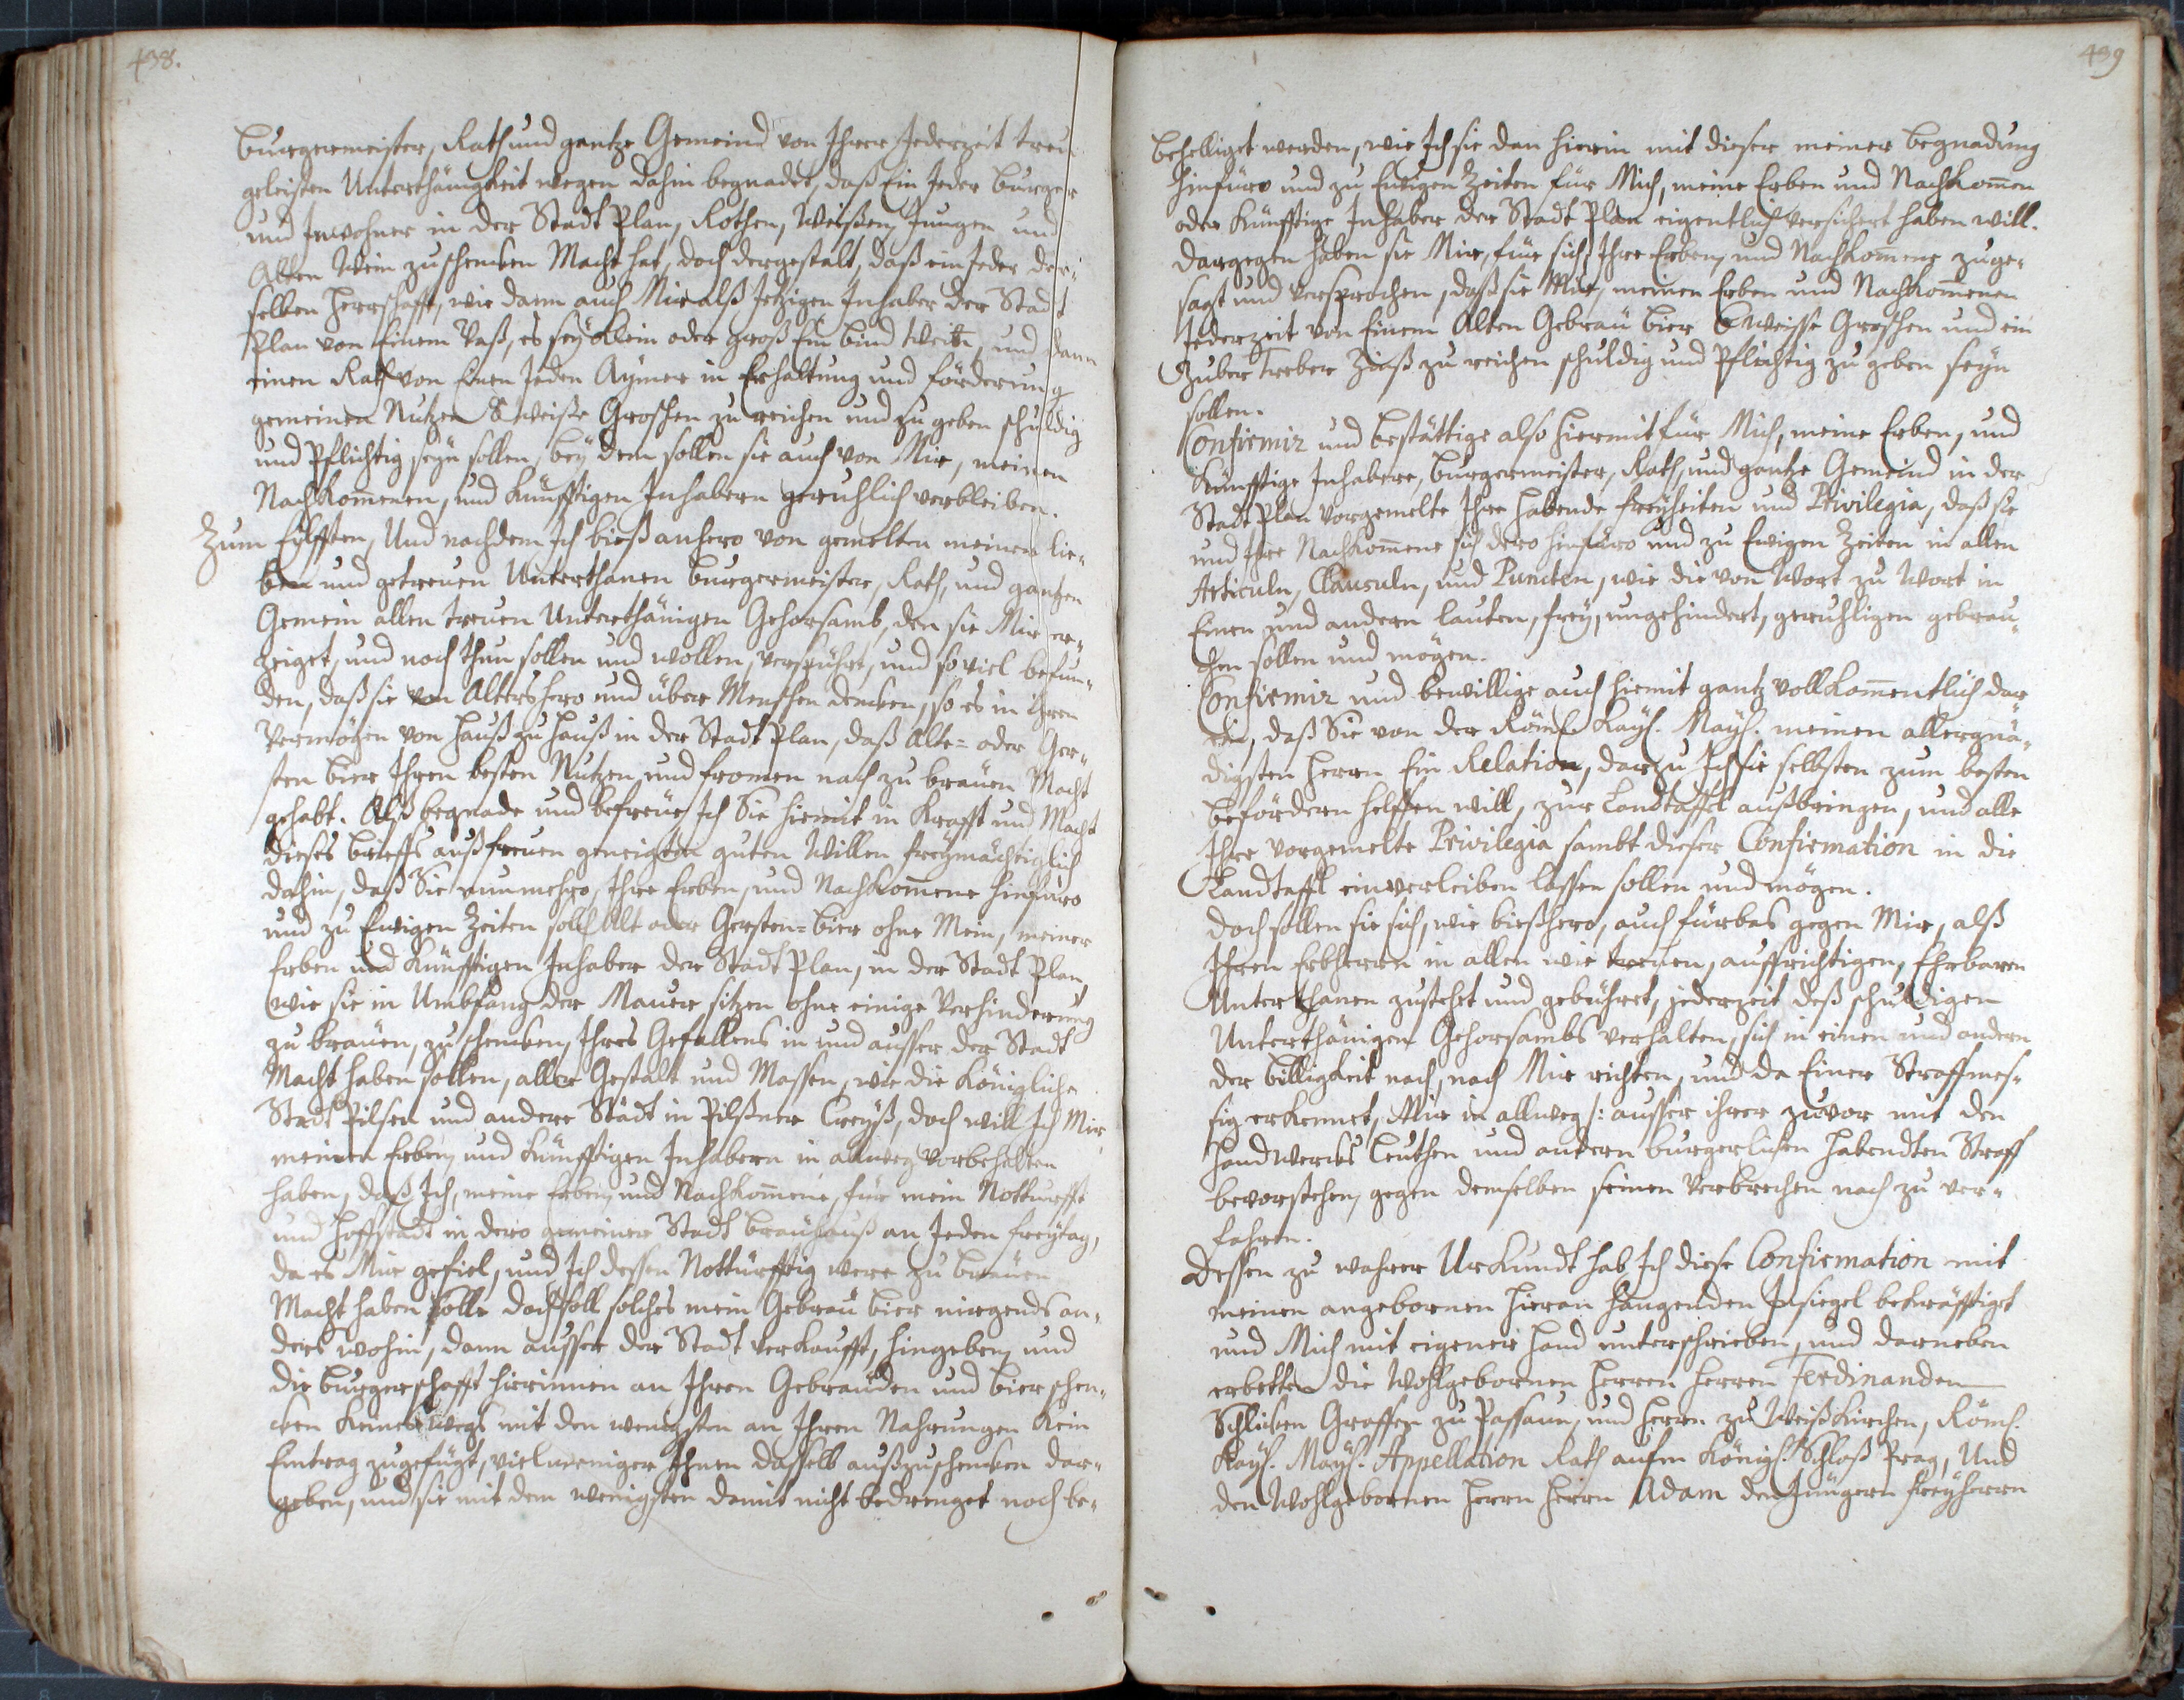 438.
Burgermeister, Rath und gantze Gemeind von Ihrer Jederzeit treu
geleisten Unterthänigkeit wegen dahin begnadet, daß Ein Jeder Burger
und Inwohner in der Stadt Plan, Rothen, Weißen, Jungen und
Alten Wein zu schencken Macht hat, doch dergestalt, daß ein Jeder der-
selben Herrschafft, wie dann auch Mir alß Jetzigen Inhaber der Stadt
Plan von Einem Vaß, es seÿ klein oder groß Ein bind und dann
einen Rath von Einen Jeden Aÿmer in Erhaltung und förderung
gemeinen Nutzen 8 weiße Groschen zu reichen und zu geben schuldig
und Pflichtig seÿn sollen, beÿ dem sollen sie auch von Mir, meinen
Nachkom̄enen, und künfftigen Inhabern geruhlich verbleiben.
Zum Eÿlfften, Und nachdem Ich bießanhero von gemelten meinen lie-
ben und getreuen Unterthanen Burgermeister, Rath, und gantzen
Gemein allen treuen Unterthänigen Gehorsamb, den sie Mir er-
zeiget, und noch thun sollen und wollen, verspührt, und so viel befun-
den, daß sie von Altershero und über Menschen dencken, so es in Ihren
Vermögen von Hauß zu Hauß in der Stadt Plan, daß Alte- oder Ger-
sten bier Ihren besten Nutzen und fromen nach zu bräuen Macht
gehabt. Alß begnade und befreÿe Ich Sie hiemit in Krafft und Macht
dieses brieffs auß freuen geneigten guten Willen freÿmächtiglich
dahin, daß Sie nunmehro, Ihre Erben, und Nachkom̄ene hinfüro
und zu Ewigen Zeiten solch Alt oder Gersten-bier ohne Mein, meiner
Erben und künfftigen Inhaber der Stadt Plan, in der Stadt Plan,
wie sie in Umbfang der Mauer sitzen ohne einige Verhinderung
zu bräuen, zu schencken, Ihres Gefallens in und ausser der Stadt
Macht haben sollen, aller Gestalt und Massen, wie die Königliche
Stadt Pilsen und andere Städt in Pilßner Creÿß, doch will Ich Mir,
meinen Erben, und künfftigen Inhabern in allweg vorbehalten
haben, daß Ich, meine Erben, und Nachkom̄ene, für mein Notturfft
und Hoffstadt in dero gemeiner Stadt bräuhauß an Jeden freÿtag,
da es Mir gefiel, und Ich dessen Nottürfftig were zu bräuen
Macht haben solle, doch soll solches mein Gebräu bier nirgends an-
ders wohin, dann ausser der Stadt verkaufft, hingeben, und
die burgerschafft hierinnen an Ihren Gebräuden und bier schen-
cken keineswegs mit den wenigsten an Ihren Nahrungen kein
Eintrag zugefügt, vielweniger Ihnen dasselb außzuschencken dar-
geben, und sie mit dem wenigsten damit nicht bedrenget noch be-
439
behelliget werden, wie Ich sie dan hierin mit dieser meiner begnadung
hinfüro und zu Ewigen Zeiten für Mich, meine Erben und Nachkom̄en
oder künfftige Inhaber der Stadt Plan eigentlich versichert haben will.
Dargegen haben sie Mir, für sich, Ihre Erben, und Nachkom̄ene zuge-
sagt und versprochen, daß sie Mir, meinen Erben und Nachkom̄enen
Jederzeit von Einem Alten Gebräu bier 6 weisse Groschen und ein
Zuber Treber Zinß zu reichen schuldig und Pflichtig zu geben seÿn
sollen.
Confirmir und bestättige also hiermit für Mich, meine Erben, und
künfftige Inhabere, burgermeister, Rath, und gantze Gemeind in der
Stadt Plan vorgemelte Ihre habende freÿheiten und Privilegia, daß sie
und Ihre Nachkom̄ene sich dero hinfüro und zu Ewigen Zeiten in allen
Articuln, Clausuln, und Puncten, wie die von Wort zu Wort in
Einen und andern lauten, freÿ, ungehindert, geruhligen gebrau-
chen sollen und mögen.
Confirmir und bewillige auch hiemit gantz vollkom̄entlich dar
ein, daß Sie von der Röm. Kaÿs. Maÿs. meinen allergnä-
digsten Herrn Ein Relation, darzu Ich sie selbsten zum besten
befördern helffen will, zur Landtaffl außbringen, und alle
Ihre vorgemelte Privilegia sambt dieser Confirmation in die
Landtaffl einverleiben lassen sollen und mögen.
Doch sollen sie sich, wie bießhero, auch fürbas gegen Mir, alß
Ihren Erbherrn in allen wie treuen, auffrichtigen, Ehrbaren
Unterthanen zustehet und gebühret, jederzeit deß schuldigen
Unterthänigen Gehorsambs verhalten, sich in einen und andern
der billigkeit nach, nach Mir richten, und da Einer Straffmes-
sig erkennet, Mir in allweg /: ausser ihrer zuvor mit den
Handwercks Leuthen und andern burgerlichen habendten Straff
bevorstehen, gegen demselben seinen Verbrechen nach zu ver-
fahren.
Dessen zu wahrer Urkundt hab Ich diese Confirmation mit
meinen angebornen hieran hangenden Insiegel bekräfftiget
und Mich mit eigener Hand unterschrieben, und darneben
erbetten die Wohlgebornen Herren Herren Ferdinanden
Schlicken Graffen zu Passaun, und Herrn zu Weißkirchen, Röm.
Kaÿs. Maÿs. Appellation Rath aufm Königl. Schloß Prag, Und
den Wohlgebornen Herrn Herrn Adam den Jüngern freÿherrn